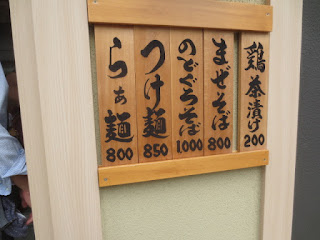 鶏茶漬け 200
まぜそば 800
のどぐろそば 1,000
つけ麺 850
らぁ麺 800